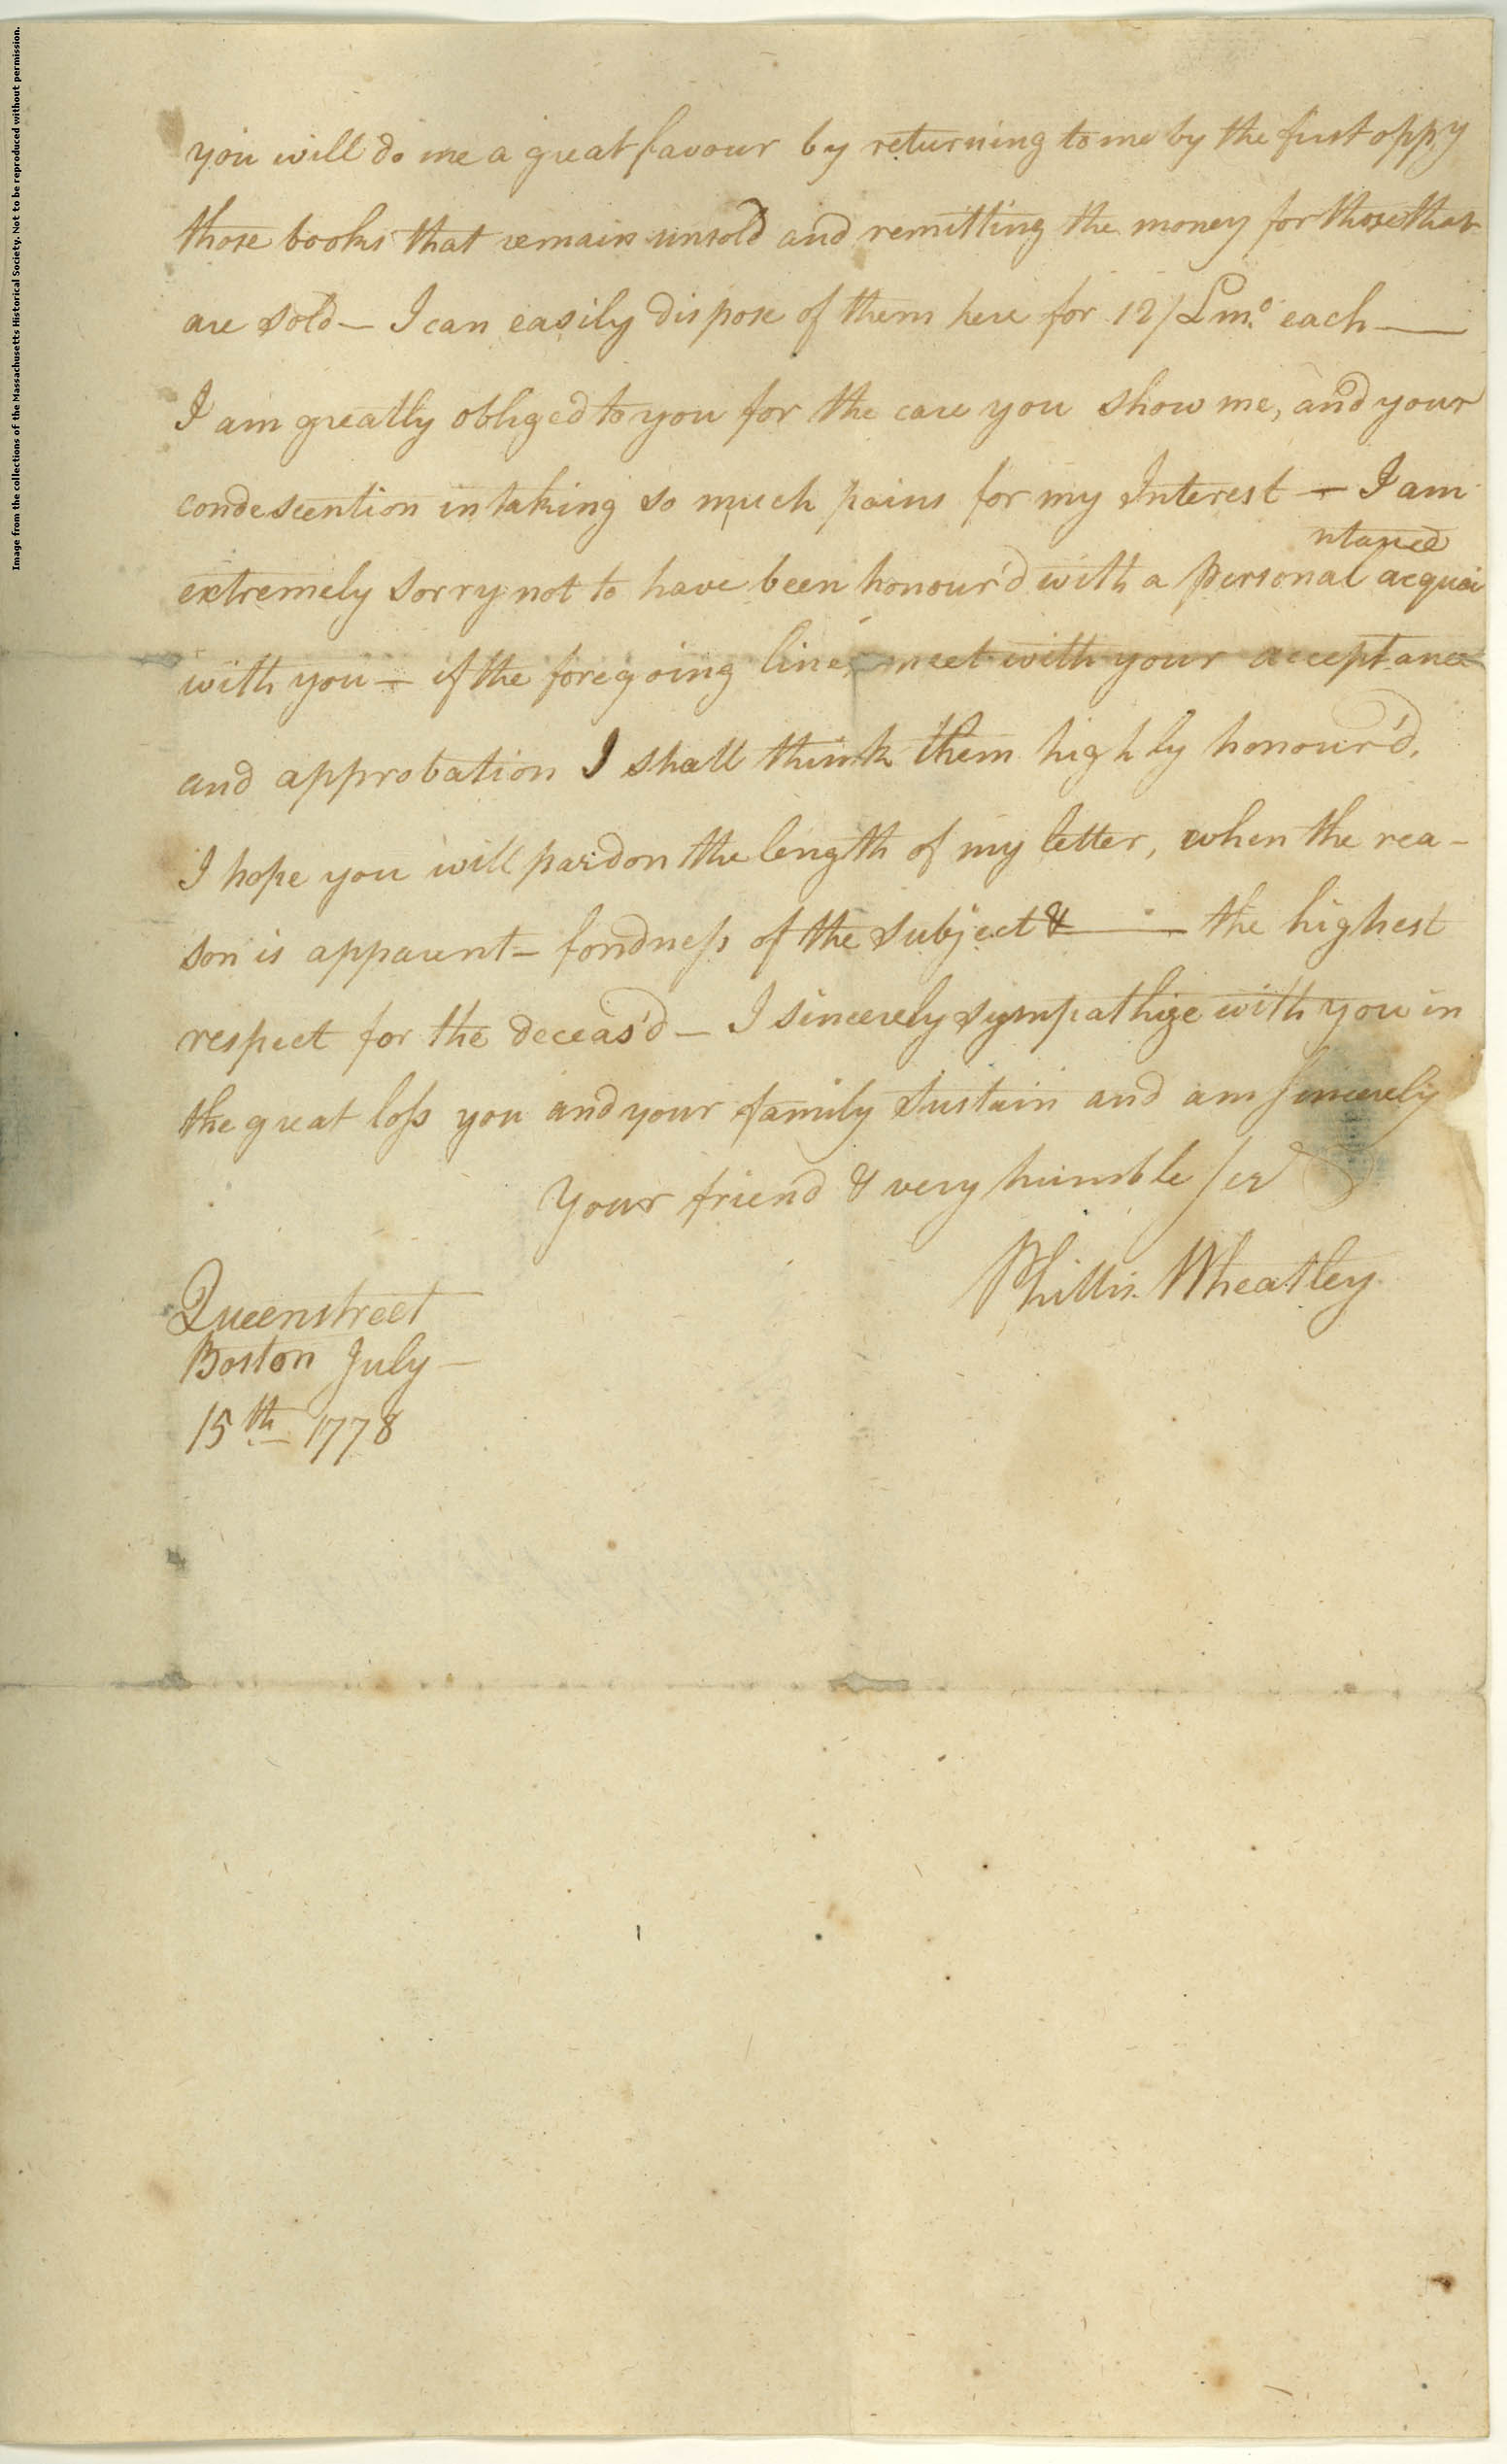 Image from the collections of the Massachusetts Historical Society. Not to be reproduced without permission.
you will do me a great favour by returning to me by the first oppy
those books that remain unsold and remitting the money for those that
are sold— I can easily dispose of them here for 12/Lm.º each——
I am greatly obliged to you for the care you show me, and your
condescention in taking so much pains for my Interest — I am
extremely sorry not to have been honour'd with a personal acquai
ntance
with you — if the foregoing lines meet with your acceptance
and approbation I shall think them highly honour'd.
I hope you will pardon the length of my letter, when the rea-
son is apparent— fondness of the subject &—— the highest
respect for the deceas'd— I sincerely sympathize with you in
the great loss you and your family Sustain and am Sincerely
Your friend & very humble Ser
Phillis Wheatley
Queenstreet
Boston July —
15th 1778